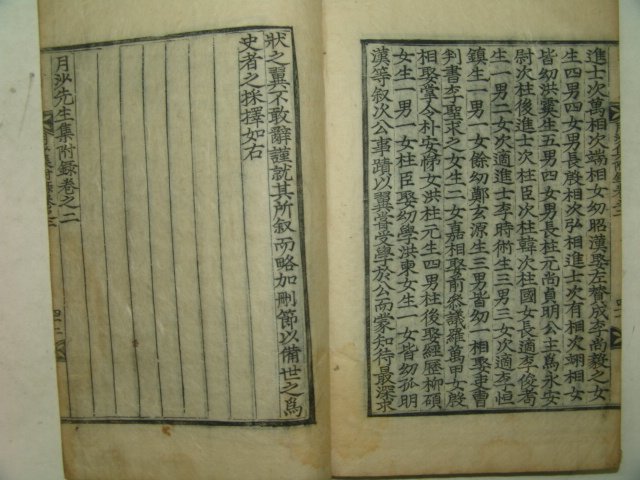 進士次萬相次端相女幼昭漢娶左贊成李尚毅之女
生四男四女男長殷相次弘相進士次有相次翊相女
皆幼洪霙生五男四女男長柱元尚貞明公主爲永安
尉次柱後進士次柱臣次柱韓次柱國女長適李俊耉
生一男一女次適進士李時術生三男三女次適李恒
鎭生一男一女餘幼鄭玄源生三男皆幼一相娶吏曹
判書李聖求之女生二女嘉相娶前參議羅萬甲女殷
相娶掌令朴安悌女洪柱元生四男柱後娶經歷柳碩
女生一男一女柱臣娶幼學洪東女生一女皆幼孤明
漢等叙次公事蹟以翼嘗受學於公而蒙知待最深求
狀之翼不敢辭謹就其所叙而略加刪節以備世之爲
史者之採擇如右
月沙先生集附錄卷之二